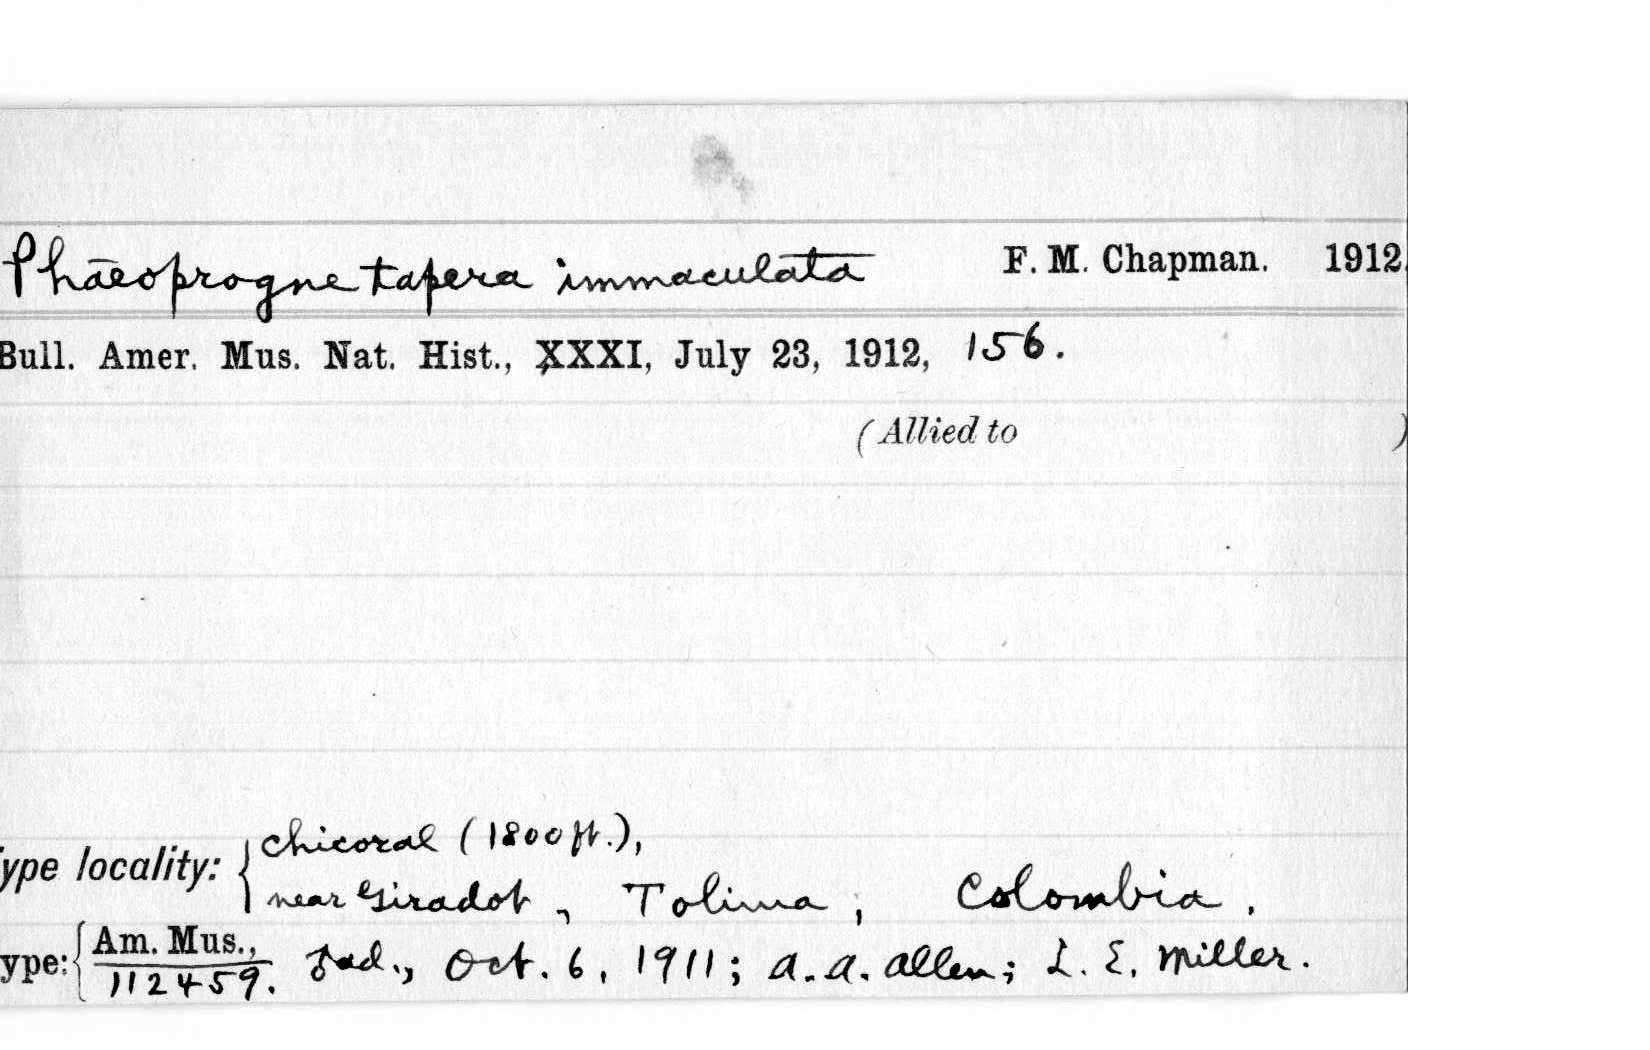 Phaeoprogne tapera immaculata F. M. Chapman. 1912.
Bull. Amer. Mus. Nat. Hist., XXXI, July 23, 1912, 156.
(Allied to )
Chicoral (1800 ft.),
ype locality:
near Giradot, Tolima, Colombia.
Am. Mus.,
ype: ad., Oct. 6, 1911; A. A. Allen; L. E. Miller.
112459.